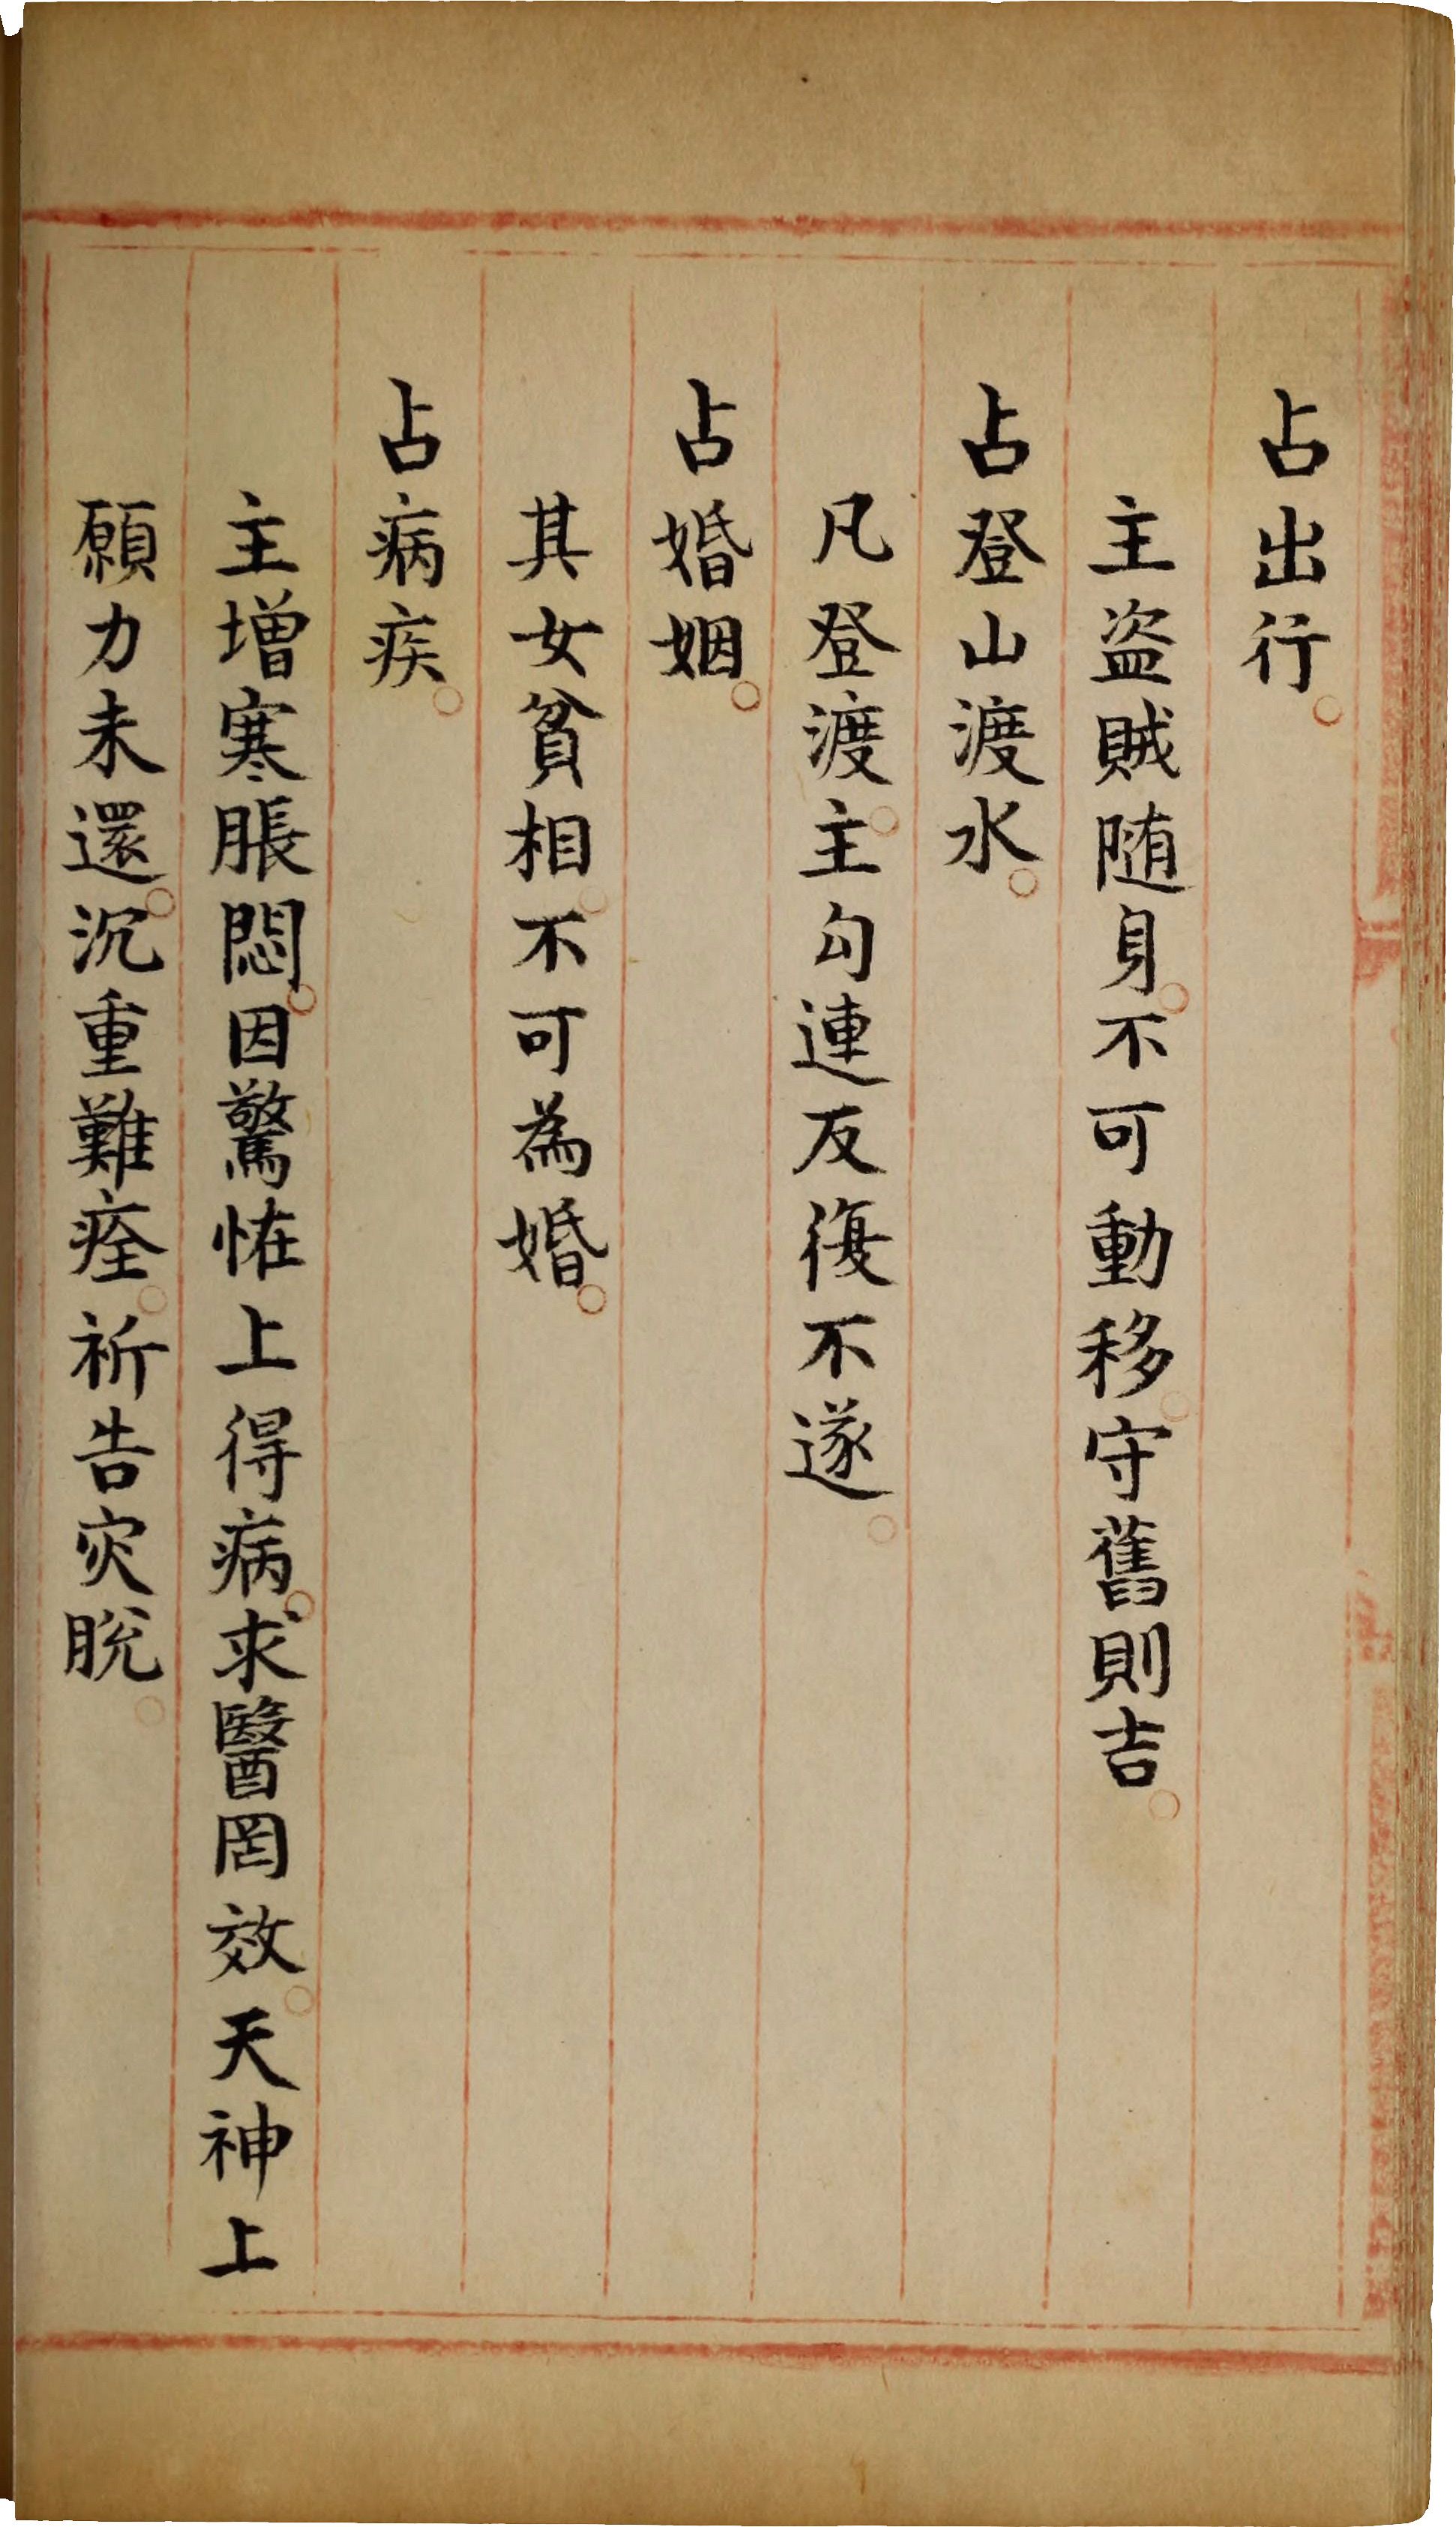 占出行。
主盗賊随身。不可動移。守舊則吉。
占登山渡水。
凡登渡。主勾連反復不遂。
占婚姻。
其女貧相。不可為婚。
占病疾。
主增寒脹悶。因驚恠上得病。求醫罔效。天神上
願力未還。沉重難痊。祈告灾脫。